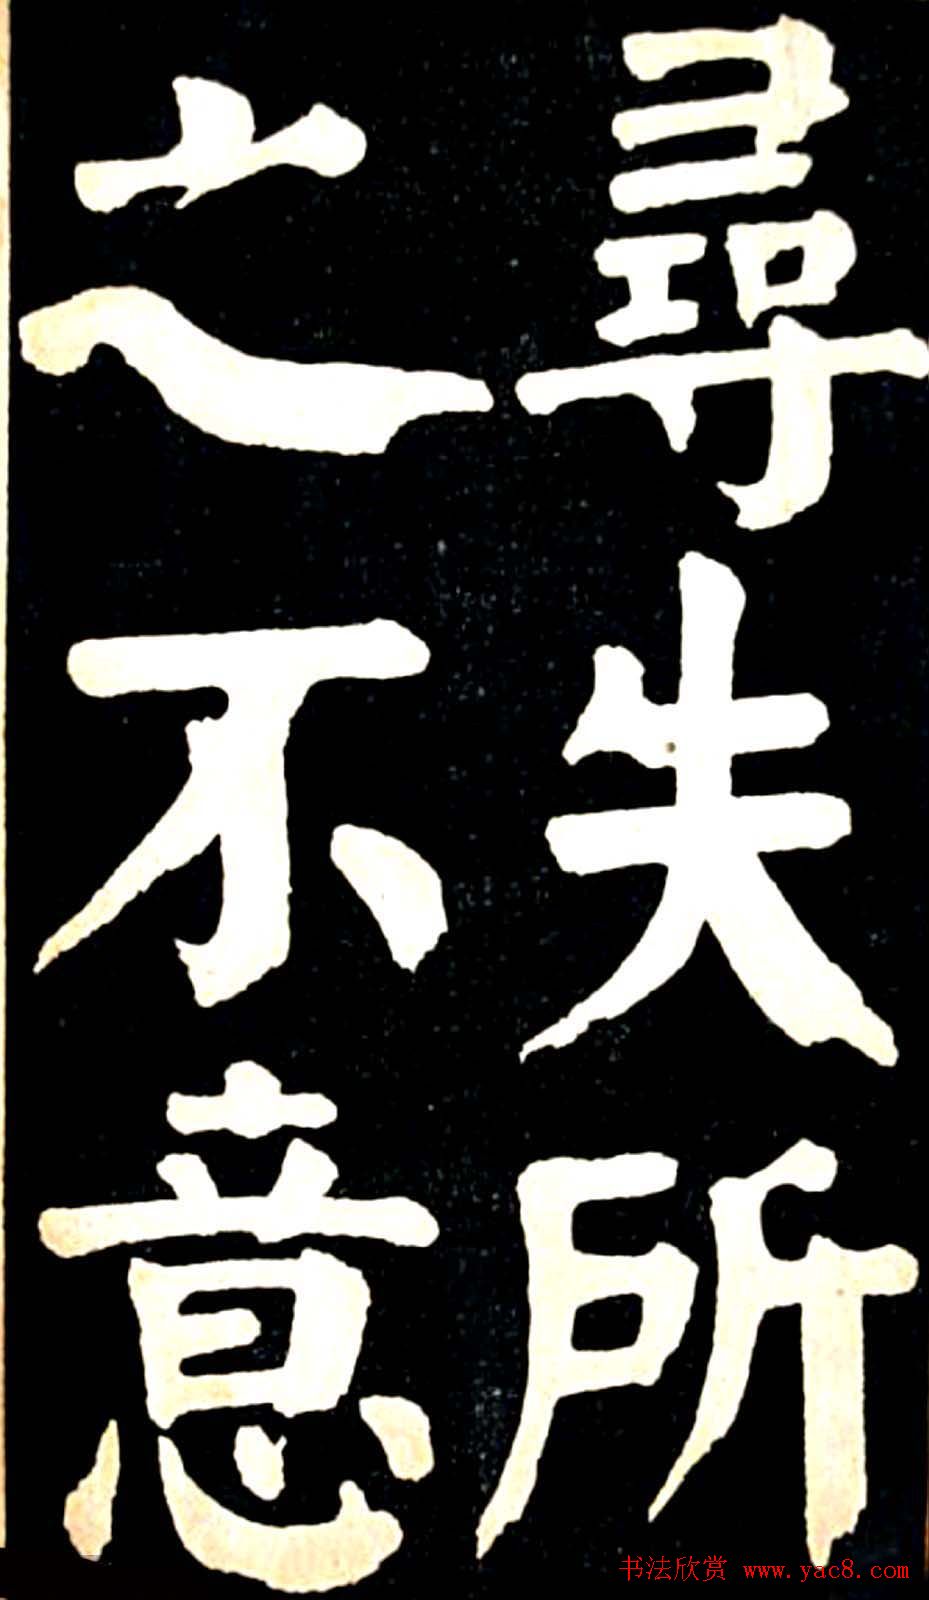 尋失所
之不意
书法欣赏 www.yac8.com